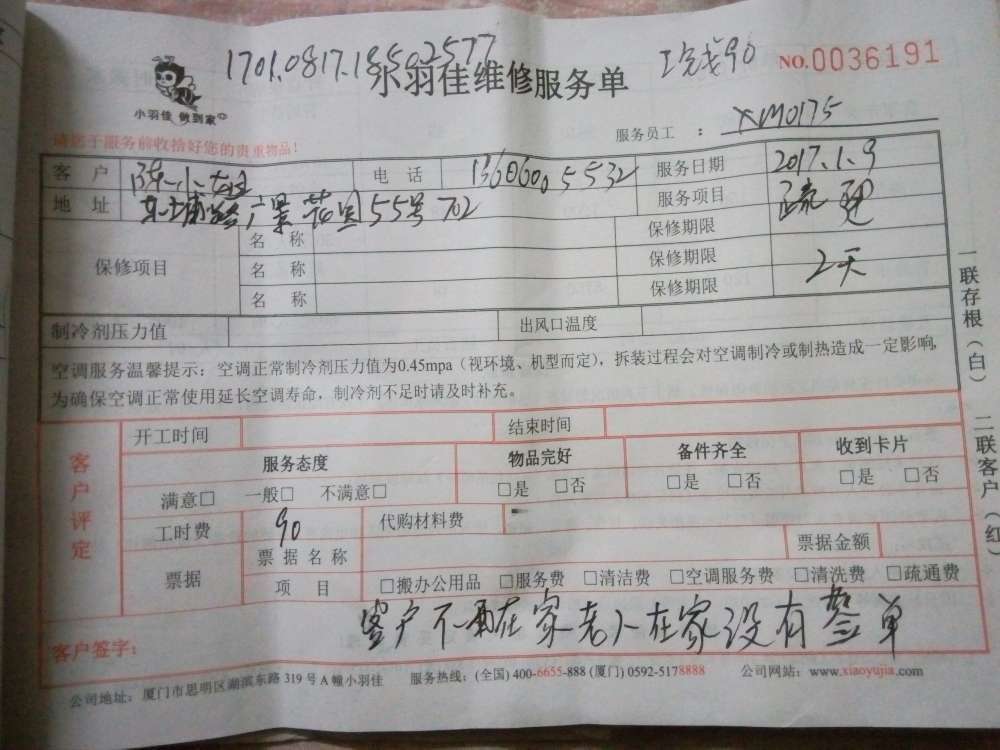 1701.0817.18502577 现戋90 NO.0036191
小羽佳维修服务单
小羽佳 做到家
服务员工 : XM0175
请您于服务前收拾好您的贵重物品!
客 户 陈小姐 电 话 13606005532 服务日期 2017.1.9
地 址 广景花园55号702 服务项目 疏通
保修项目 名 称 保修期限
名 称 保修期限 2天
名 称 保修期限
制冷剂压力值 出风口温度
空调服务温馨提示：空调正常制冷剂压力值为0.45mpa（视环境、机型而定），拆装过程会对空调制冷或制热造成一定影响，
为确保空调正常使用延长空调寿命，制冷剂不足时请及时补充。
一联存根（白） 二联客户（红）
客户评定
开工时间 结束时间
服务态度 物品完好 备件齐全 收到卡片
满意□ 一般□ 不满意□ □是 □否 □是 □否 □是 □否
工时费 90 代购材料费
票据 票据名称 票据金额
项 目 □搬办公用品 □服务费 □清洁费 □空调服务费 □清洗费 □疏通费
客户签字: 客户不在家老人在家没有签单
公司地址：厦门市思明区湖滨东路 319 号 A 幢小羽佳 服务热线：(全国) 400-6655-888 (厦门) 0592-5178888 公司网站：www.xiaoyujia.com